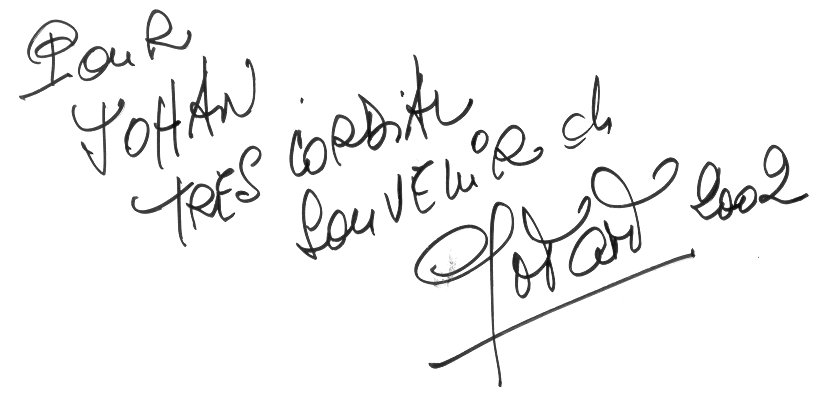 Pour
JOHAN
TRES CORDIAL
SOUVENIR de
2002